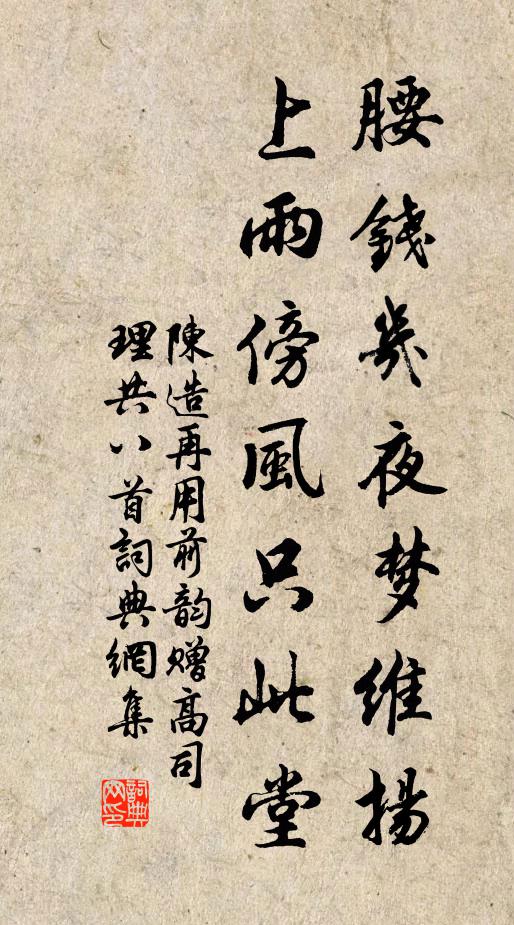 腰錢幾夜梦維揚
上雨傍風只此堂
陳造再用前韵贈高司
理共八首詞典網集
詞典
网印